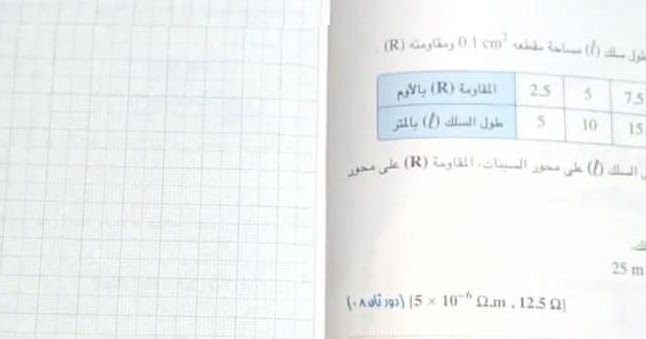 طول سلك (ℓ) مساحة مقطعه 0.1 cm² ومقاومته (R)
المقاومة (R) بالأوم 2.5 5 7.5
طول السلك (ℓ) بالمتر 5 10 15
السلك (ℓ) على محور السينات، المقاومة (R) على محور
25 m
(دور ثان ٠٨) [5 × 10⁻⁶ Ω.m , 12.5 Ω]